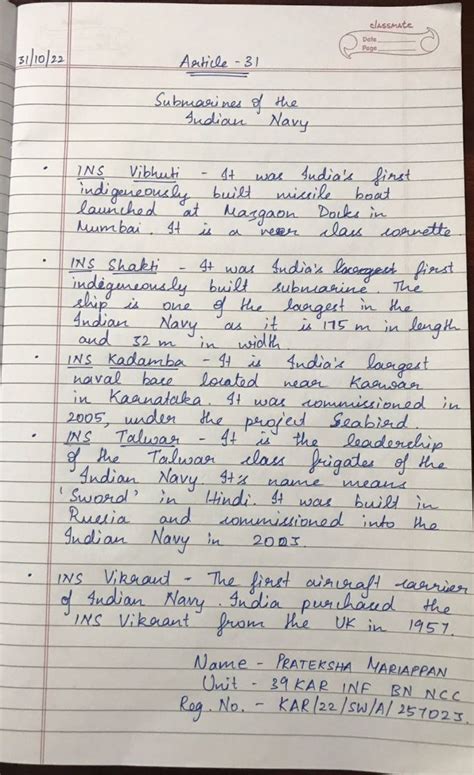 classmate
Date
Page
31/10/22
Article - 31
Submarines of the
Indian Navy
• INS Vibhuti - It was India's first
indigeneously built missile boat
launched at Mazgaon Docks in
Mumbai. It is a veer class corvette
• INS Shakti - It was India's largest first
indegeneously built submarine. The
ship is one of the largest in the
Indian Navy as it is 175 m in length
and 32 m in width.
• INS Kadamba - It is India's largest
naval base located near Karwar
in Kaanataka. It was commissioned in
2005, under the project Seabird.
• INS Talwar - It is the leadership
of the Talwar class frigates of the
Indian Navy. It's name means
'Sword' in Hindi. It was built in
Russia and commissioned into the
Indian Navy in 2003.
• INS Vikrant - The first aircraft carrier
of Indian Navy. India purchased the
INS Vikrant from the UK in 1957.
Name - PRATEKSHA MARIAPPAN
Unit - 39 KAR INF BN NCC
Reg. No. - KAR/22/SW/A/257023.